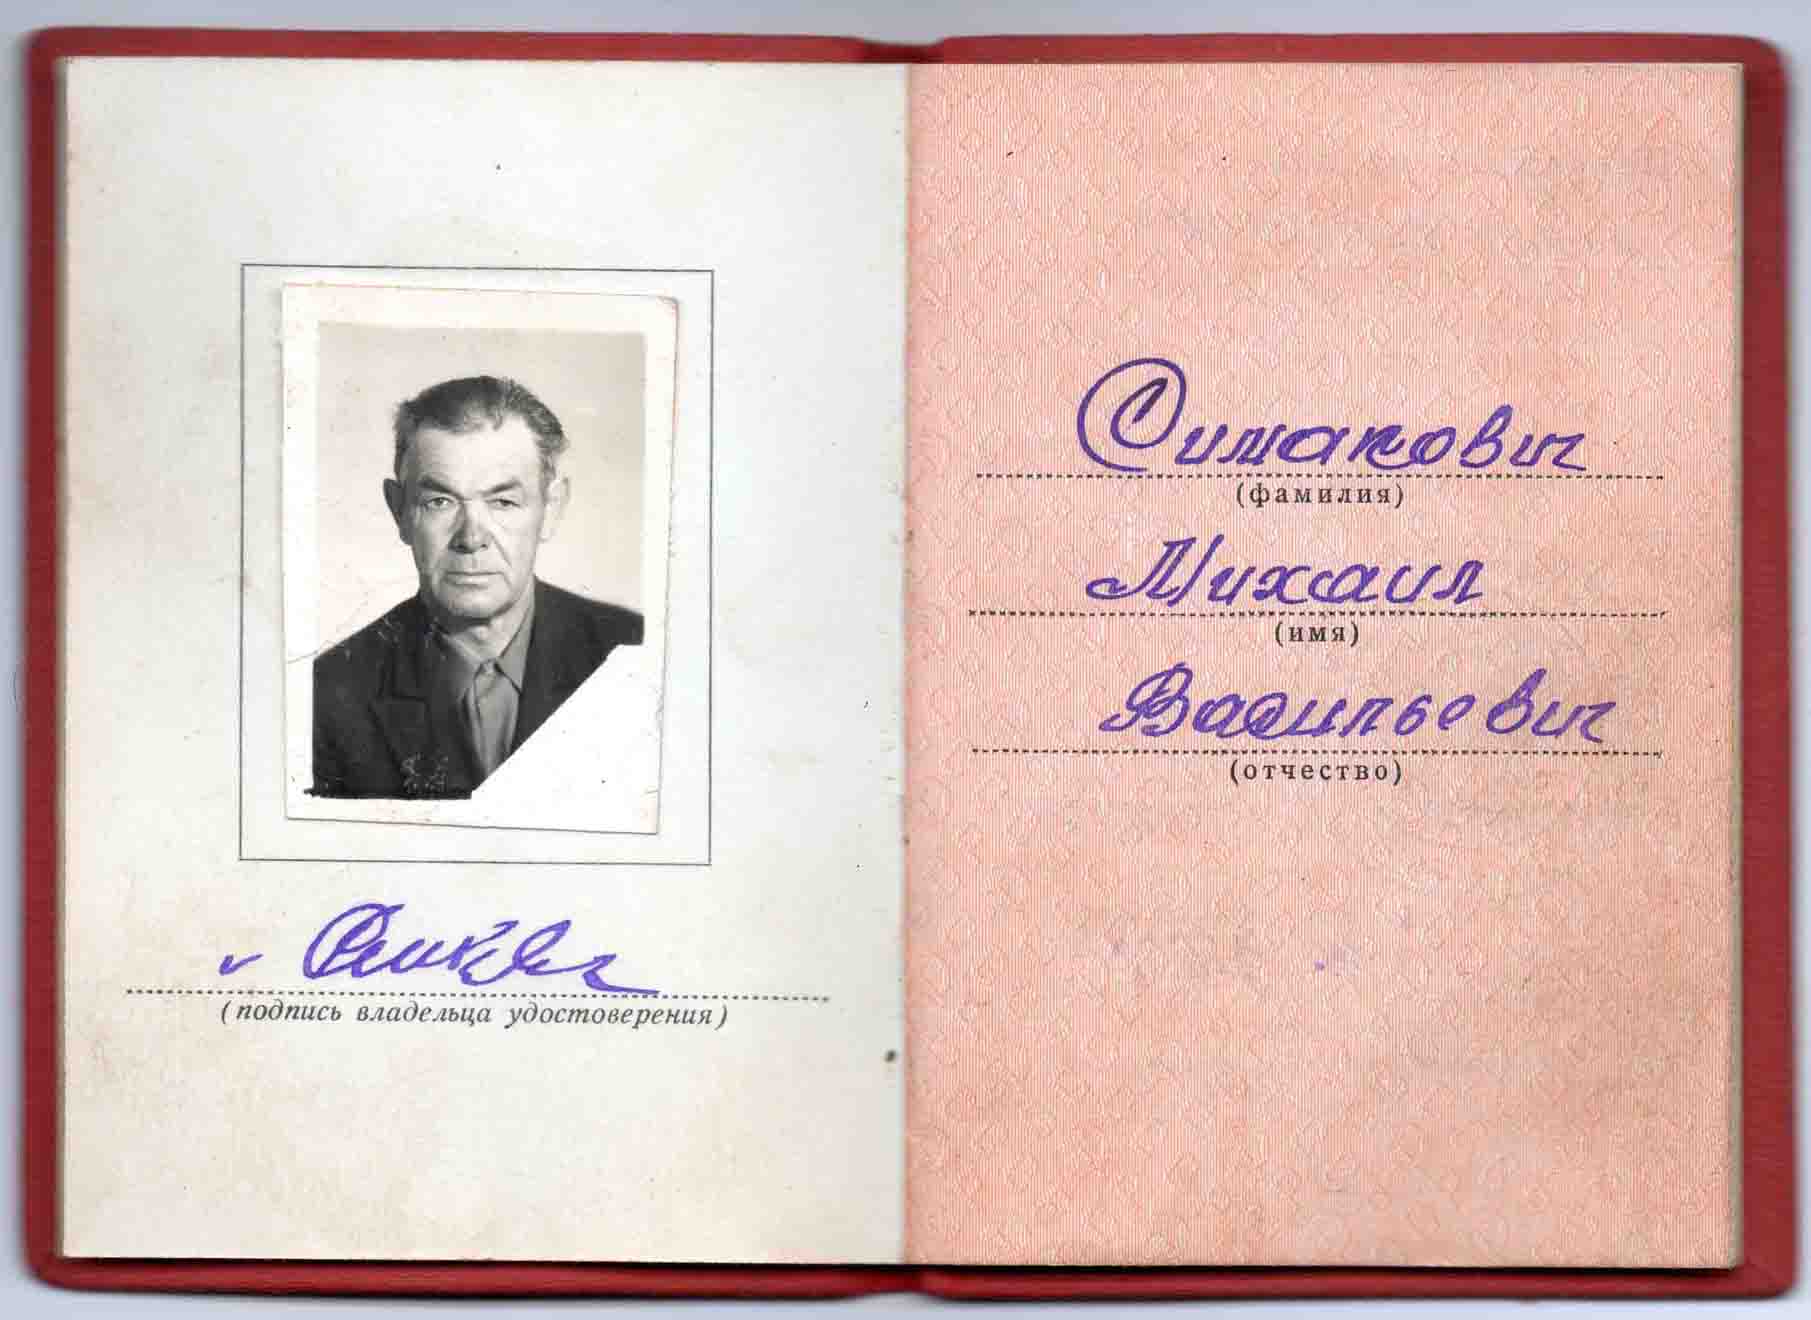 (подпись владельца удостоверения)
Симакович
(фамилия)
Михаил
(имя)
Васильевич
(отчество)